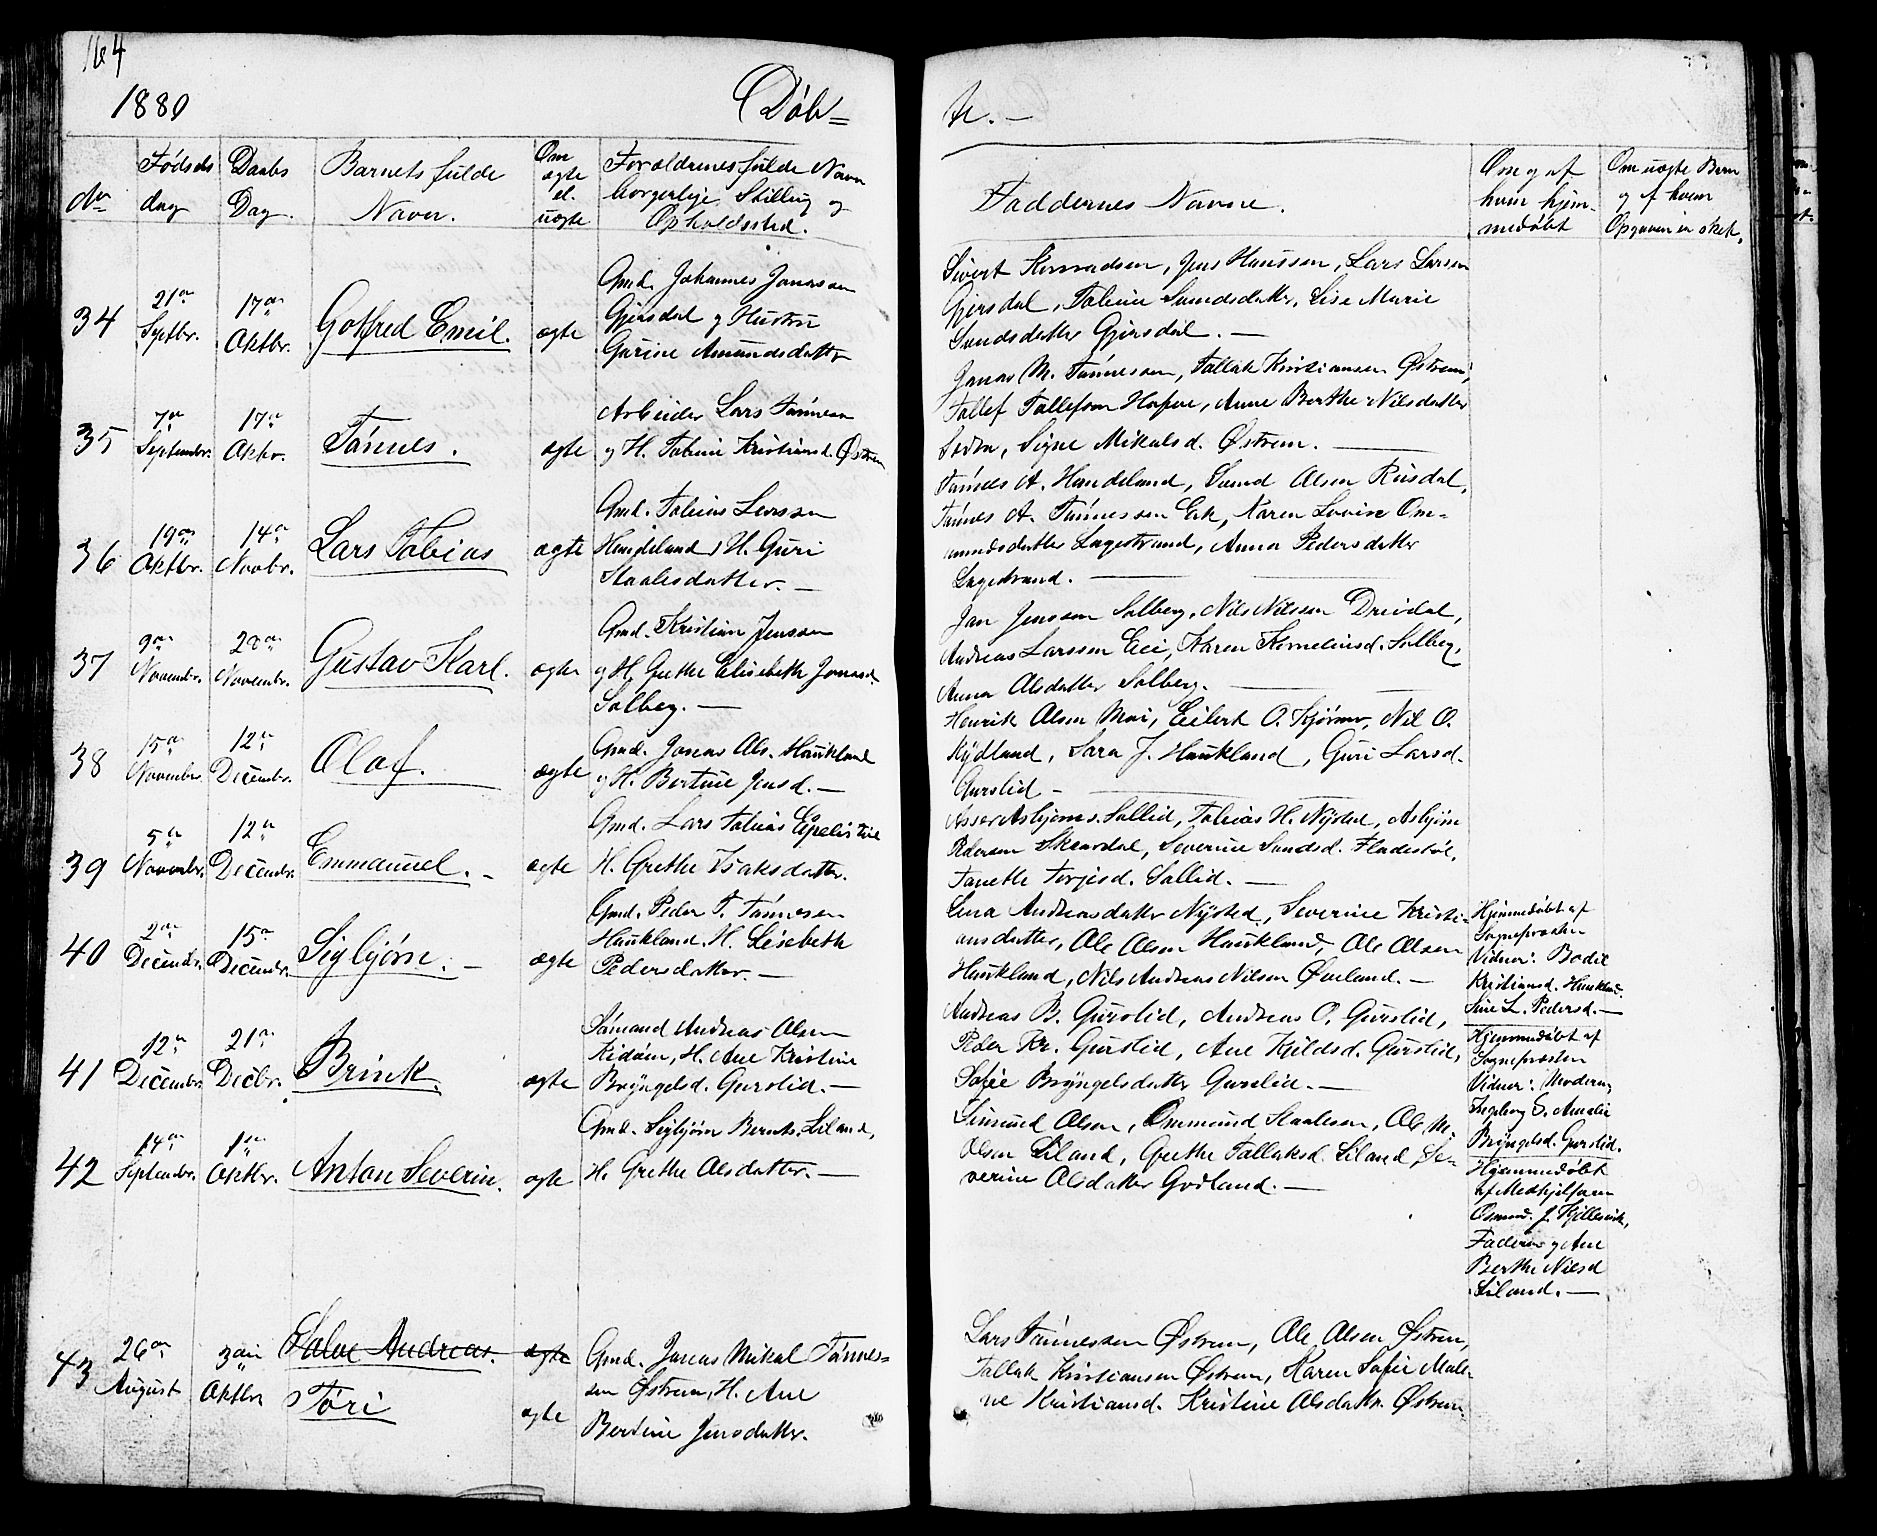 164
1880
Døb=
te. —
No
Fødsels
dag
Daabs
Dag.
Barnets fulde
Navn.
Om
ægte
el.
uægte
Forældrenes fulde Navn
borgerlige Stilling og
Opholdssted.
Faddernes Navne.
Om og af
hvem hjem-
medøbt
Om uægte Børn
og af hvem
Opgaven er skeet.
34
21de
Septbr.
17de
Oktbr.
Gotfred Emil.
ægte
Gmd. Johannes Jonassen
Gjersdal og Hustru
Gurine Amundsdatter
Sivert Konradsen, Jens Hanssen, Lars Larsen
Gjersdal, Tobine Sundsdatter, Lise Marie
Svendsdatter Gjersdal. —
35
7de
September.
17de
Oktbr.
Tønnes.
ægte
Arbeider Lars Tønnesen
og H. Tobine Kristiansd. Østrem
Jonas M. Tønnessen, Tallak Kristiansen Østrem,
Tallef Tallefsen, Anne Berthe Nilsdatter
Signe Mikalsd. Østrem. —
36
19de
Oktbr.
14de
Novbr.
Lars Tobias
ægte
Gmd. Tobias Larssen
Handeland, H. Guri
Staalesdatter. —
Tønnes A. Handeland, Svend Olsen Risdal,
Tønnes A. Tønnessen Eik, Karen Lovise Om-
mundsdatter Lagestrand, Anna Pedersdatter
Lagestrand. —
37
9de
Novembr.
28de
Novembr.
Gustav Karl.
ægte
Gmd. Kristian Jenssen
og H. Grethe Elisebeth Jonasd.
Solberg. —
Jan Jenssen Solberg, Nils Nilssen Dreidal,
Andreas Larssen Eie, Karen Korneliusd. Solberg,
Anna Olsdatter Solberg. —
38
15de
November
12te
Decembr.
Olaf.
ægte
Gmd. Jonas Ols. Haukland
og H. Bertine Jensd. —
Henrik Olsen Moi, Eilert O. Nil O.
Rydland, Sara J. Haukland, Guri Larsd.
Gurslid —
39
5te
Novembr.
12te
Decembr.
Emmanuel. —
ægte
Gmd. Lars Tobias
H. Grethe Isaksdatter.
Asser Asbjørns. Sollid, Tobias H. Nysted, Asbjørn
Pedersen Skaardal, Severine Sundsd. Fladestøl,
Tanette Torjesd. Sollid. —
40
2den
Decembr.
15de
Decembr.
Sigbjørn. —
ægte
Gmd. Peder T. Tønnesen
Haukland, H. Lisebeth
Pedersdatter. —
Lena Andreasdatter Nysted, Severine Kristi-
ansdatter, Ole Olsen Haukland, Ole Olsen
Haukland, Nils Andreas Nilsen Øveland. —
Hjemmedøbt af
Sognepræsten
Vidner: Bodil
Kristiansd. Haukland.
Sine L. Pedersd. —
41
12te
Decembr.
21de
Decbr.
Brink.
ægte
Sømand Andreas Olsen
H. Ane Kristine
Bryngelsd. Gurslid. —
Andreas B. Gurslid, Andreas O. Gurslid,
Peder Kr. Gurslid, Ane Kjeldsd. Gurslid,
Sofie Bryngelsdatter Gurslid. —
Hjemmedøbt af
Sognepræsten
Vidner: Moderen,
Ingeborg S. Amalie
Bryngelsd. Gurslid.
42
14de
Septembr.
1ste
Oktbr.
Anton Severin.
ægte
Gmd. Sigbjørn Bernts. Liland,
H. Grethe Olsdatter. —
Simund Olsen, Ommund Staalesen, Ole M.
Olsen Liland, Grethe Tallaksd. Liland, Se-
verine Olsdatter Godland. —
Hjemmedøbt
af Medhjelperen
Osmund J. Kjellesvik,
Faderen og Ane
Berthe Nilsd
Liland. —
43
26de
August
3die
Oktbr
Salve Andreas.
ægte
Tori
ægte
Gmd. Jonas Mikal Tønnes=
sen Østrem, H. Ane
Bertine Jensdatter.
Lars Tønnessen Østrem, Ole Olsen Østrem,
Tallak Kristiansen Østrem, Karen Sofie Mali-
ne Kristiansd. Kristine Olsdattr. Østrem.